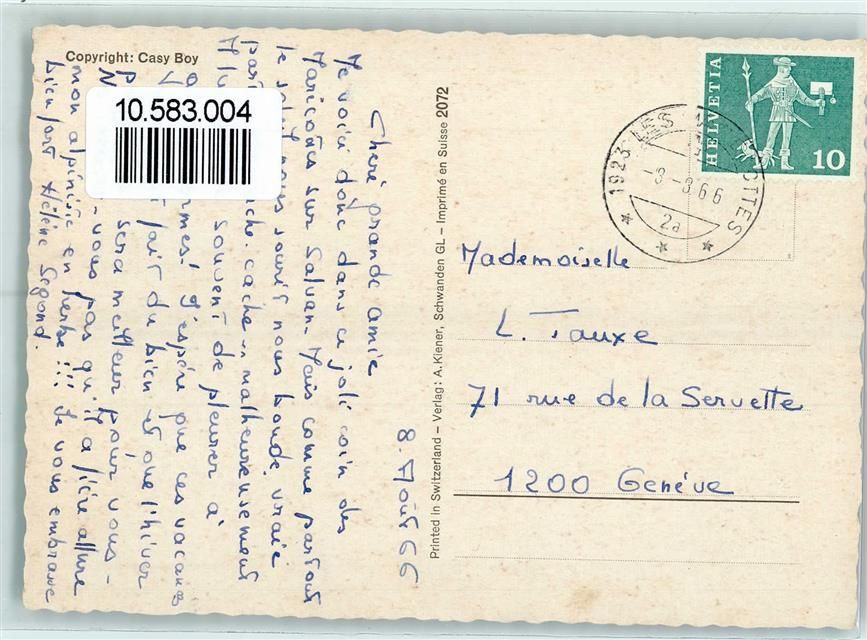 Copyright: Casy Boy
10.583.004
8. Août 66
Chère grande amie
Me voici donc dans ce joli coin des
Marécottes sur Salvan. Mais comme partout
le soleil nous sourit nous boude, vraie
partie cache-cache.. malheureusement
souvent de pleurer à
larmes! J'espère que ces vacances
fait du bien et que l'hiver
sera meilleur pour vous-
-vous pas qu'il a fière allure
mon alpiniste en herbe!!! Je vous embrasse
bien fort Hélène Segond.
Printed in Switzerland – Verlag: A. Kiener, Schwanden GL – Imprimé en Suisse 2072
HELVETIA
10
1923 LES MARÉCOTTES
-8-8.66
2a
Mademoiselle
L. Fauxe
71 rue de la Servette
1200 Genève